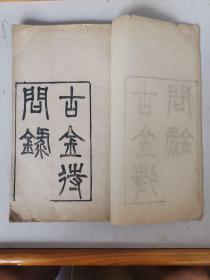 古金待
問錄